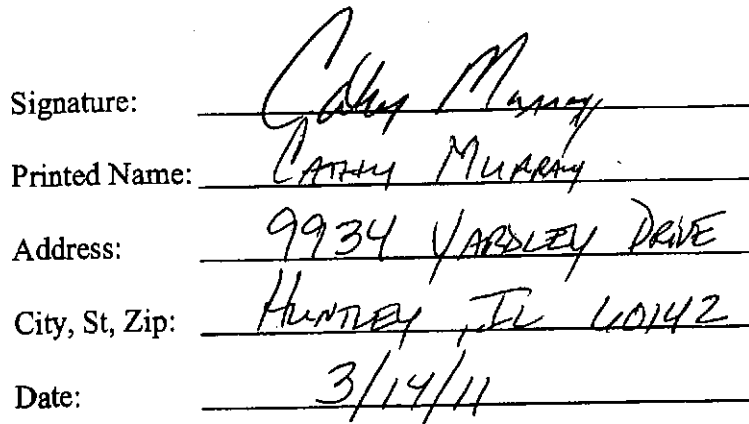 Signature: Cathy Murray
Printed Name: CATHY MURRAY
Address: 9934 YARDLEY DRIVE
City, St, Zip: HUNTLEY, IL 60142
Date: 3/14/11